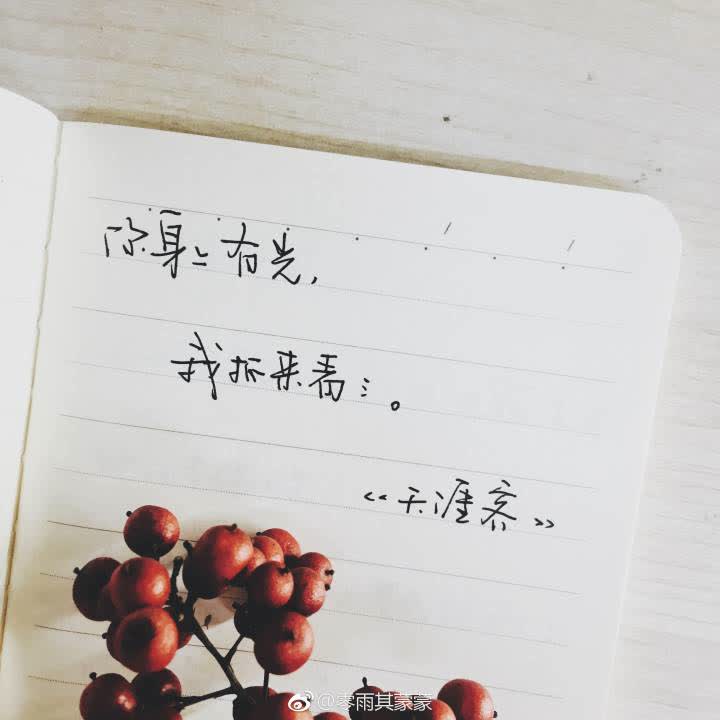 你身上有光，
我抓来看看。
《天涯客》
@零雨其蒙蒙